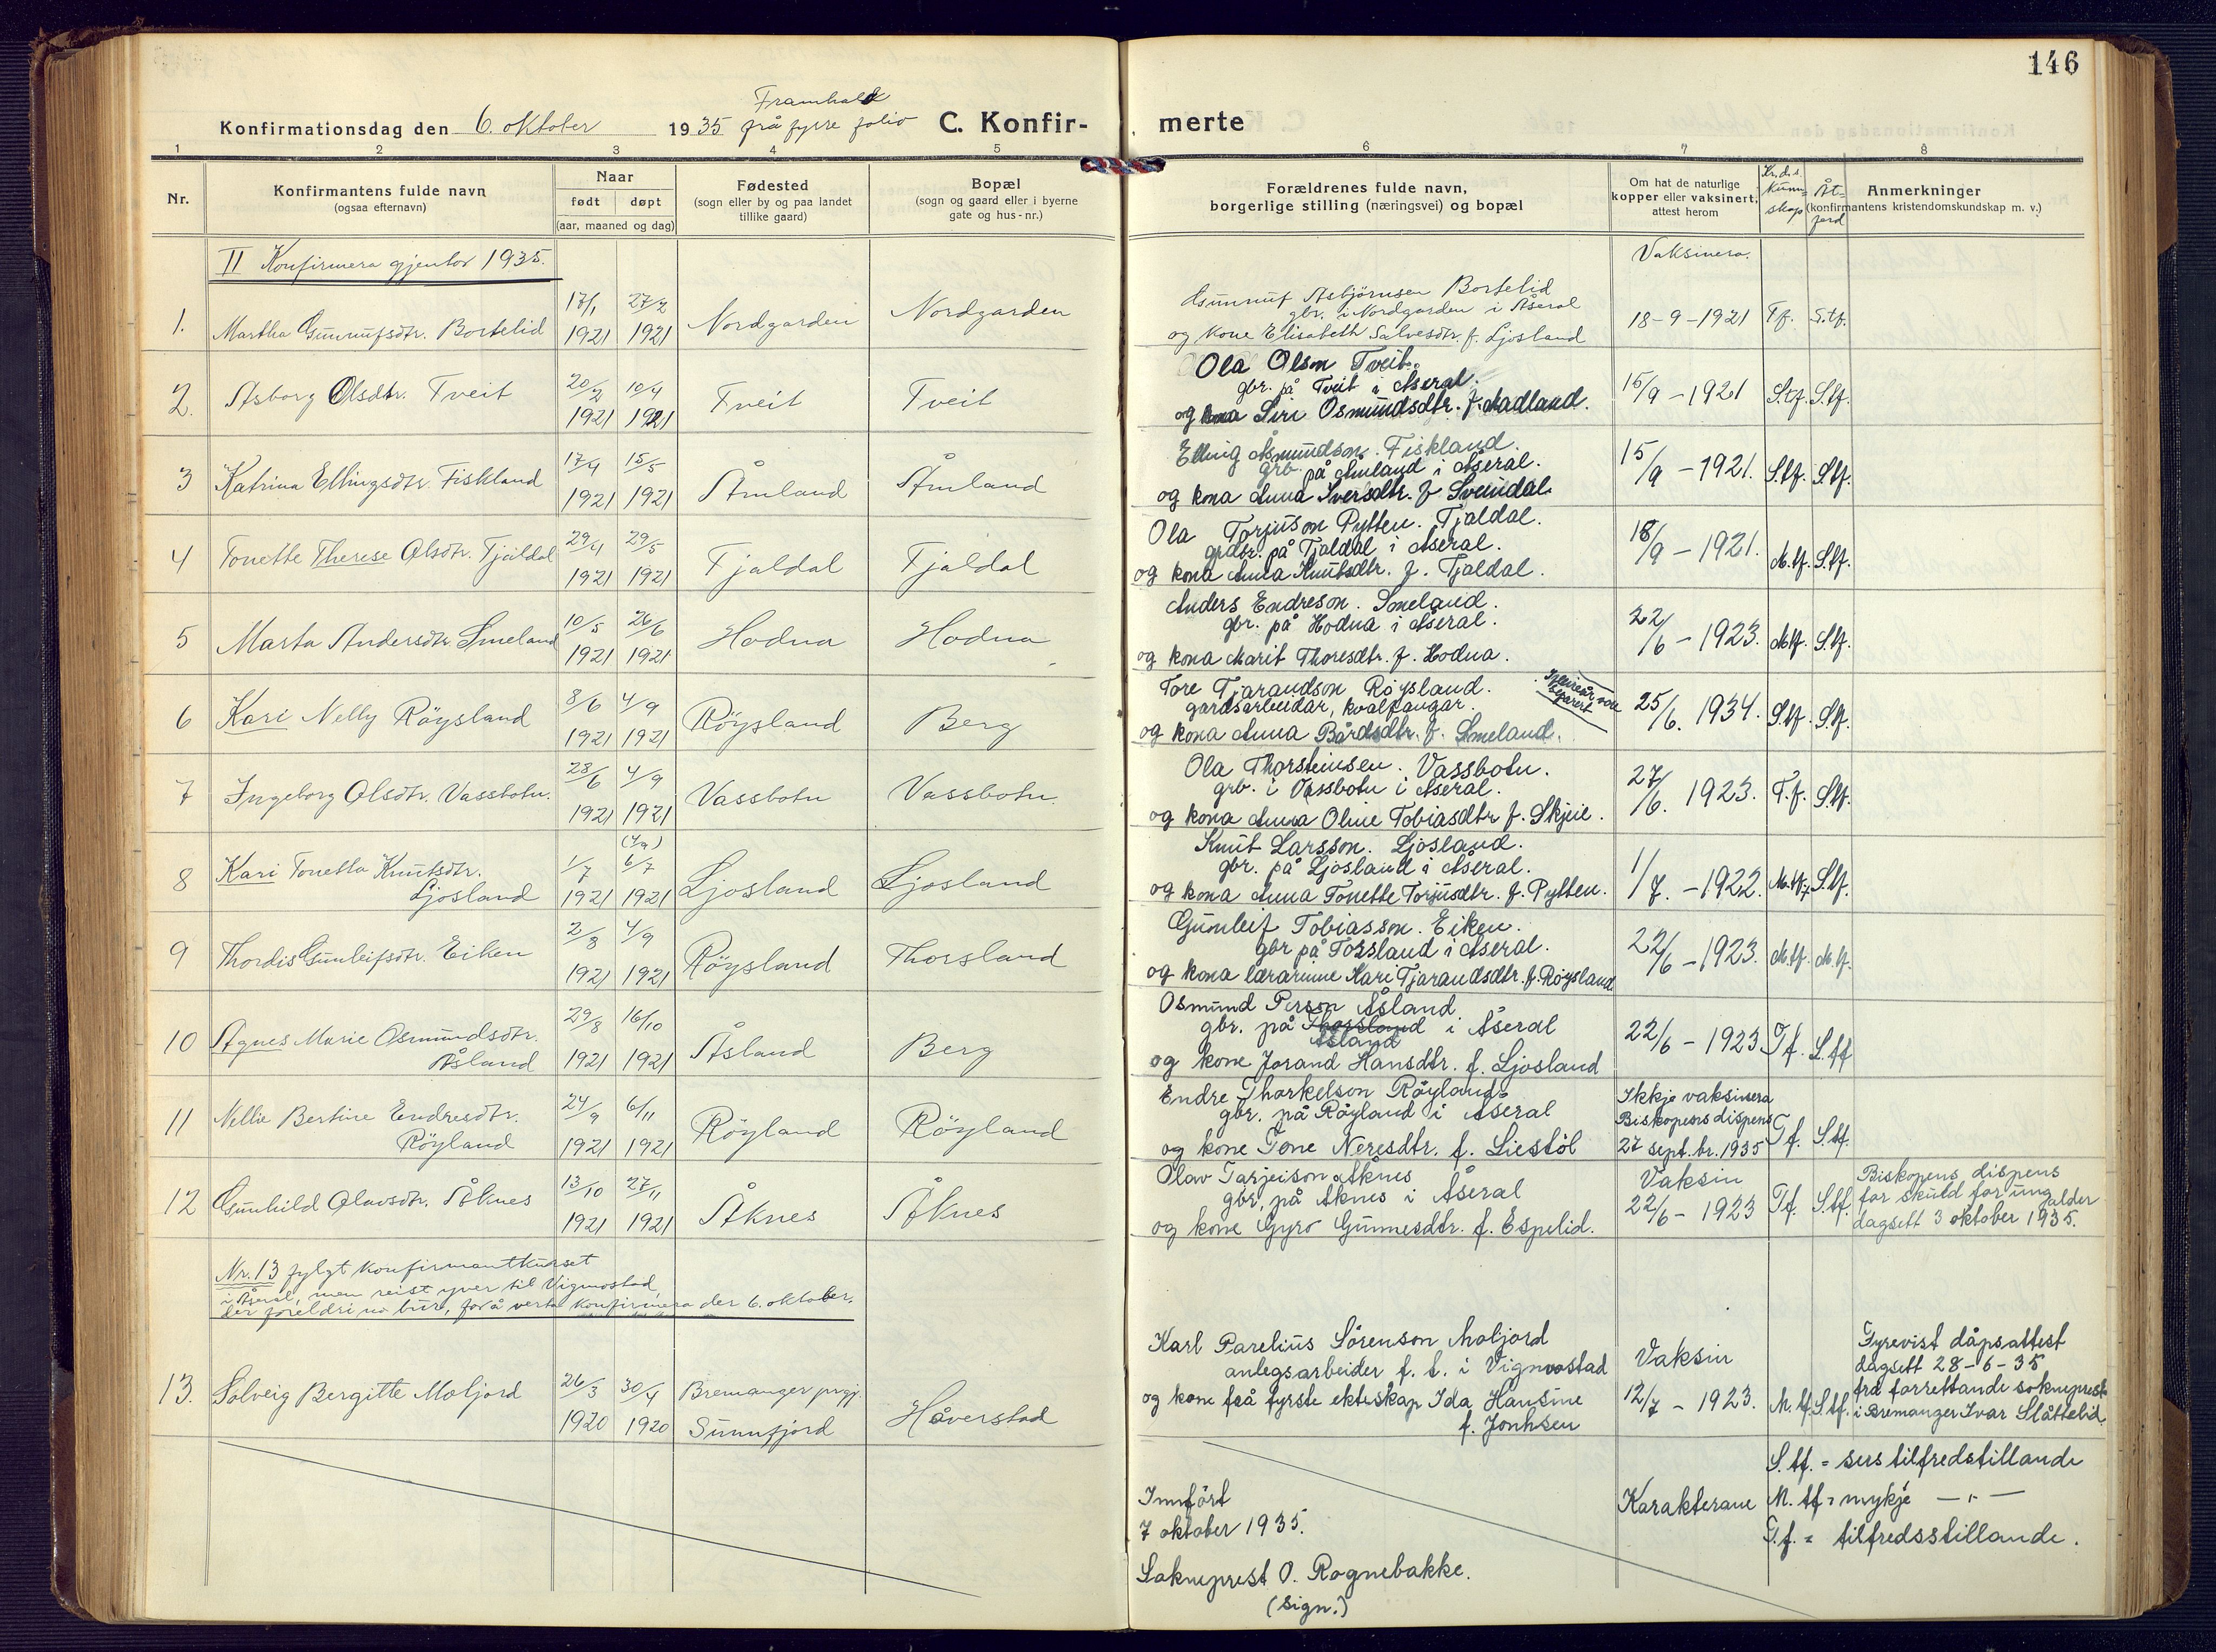 146
Framhald
Konfirmationsdag den 6. oktober 1935 frå fyrre folio C. Konfir- merte
1 2 3 4 5 6 7 8
Nr.
Konfirmantens fulde navn
(ogsaa efternavn)
Naar
født døpt
(aar, maaned og dag)
Fødested
(sogn eller by og paa landet
tillike gaard)
Bopæl
(sogn og gaard eller i byerne
gate og hus-nr.)
Forældrenes fulde navn,
borgerlige stilling (næringsvei) og bopæl
Om hat de naturlige
kopper eller vaksinert,
attest herom
Kr.d.s.
Kunn-
skap
Åt-
ferd
Anmerkninger
(konfirmantens kristendomskundskap m. v.)
II Konfirmera gjentor 1935.
Vaksinera.
1. Martha Gunnufsdtr. Bortelid 17/1 1921 27/2 1921 Nordgarden Nordgarden
Gunnuf Asbjörnsen Bortelid
gbr. i Nordgarden i Åseral
og kone Elisabeth Salvesdtr. f. Ljosland
18-9-1921 T.f. S.tf.
2. Asborg Olsdtr. Tveit 20/2 1921 10/4 1921 Tveit Tveit
Ola Olson Tveit.
gbr. på Tveit i Åseral.
og kona Siri Osmundsdtr. f. Aadland.
15/9 - 1921 S.tf. S.tf.
3 Katrina Ellingsdtr. Fiskland 17/4 1921 15/5 1921 Åmland Åmland
Elling Åsmundson. Fiskland.
grb. på Åmland i Åseral.
og kona Anna Iversdtr. f. Sveindal.
15/9 - 1921. S.tf. S.tf.
4 Tonette Therese Olsdtr. Tjaldal 29/4 1921 29/5 1921 Tjaldal Tjaldal
Ola Torjuson Pytten. Tjaldal.
grdbr. på Tjaldal i Åseral.
og kona Anna Knutsdtr. f. Tjaldal.
18/9 - 1921. M.tf. S.tf.
5 Marta Andersdtr. Smeland 10/5 1921 26/6 1921 Hodna Hodna
Anders Endreson. Smeland.
gbr. på Hodna i Åseral.
og kona Marit Thoresdtr. f. Hodna.
22/6 - 1923. M.tf. S.tf.
6 Kari Nelly Röysland 8/6 1921 4/9 1921 Röysland Berg
Tore Tjarandson Röysland.
gardsarbeidar, kvalfangar.
og kona Anna Bårdsdtr. f. Smeland.
25/6. 1934. S.tf. S.tf.
7 Ingeborg Olsdtr. Vassbotn. 28/6 1921 4/9 1921 Vassbotn Vassbotn.
Ola Thorsteinsen. Vassbotn.
grb. i Vassbotn i Åseral.
og kona Anna Oline Tobiasdtr f. Skjeie.
27/6. 1923. T.f. S.tf.
8 Kari Tonetta Knutsdtr.
Ljosland 1/7 1921 6/7 1921 Ljosland Ljosland
Knut Larsson. Ljosland.
gbr. på Ljosland i Åseral.
og kona Anna Tonette Torjusdtr. f. Pytten.
1/7. - 1922. M.tf. S.tf.
9 Thordis Gunleifsdtr. Eiken 2/8 1921 4/9 1921 Röysland Thorsland
Gunleif Tobiasson. Eiken.
gbr på Torsland i Åseral.
og kona lærarinne Kari Tjarandsdtr. f. Röysland
22/6 - 1923. M.tf. M.tf.
10 Agnes Marie Osmundsdtr.
Åsland 29/8 1921 16/10 1921 Åsland Berg
Osmund Person Åsland
gbr. på Thorsland i Åseral
Åsland
og kone Jorand Hansdtr. f. Ljosland
22/6 - 1923 T.f. S.tf
11 Nellie Bertine Endresdtr.
Röyland 24/9 1921 6/11 1921 Röyland Röyland
Endre Thorkelson Röyland
gbr. på Röyland i Åseral
og kone Tone Neresdtr. f. Liestöl
Ikkje vaksinera
Biskopens dispens
27 sept. br. 1935 T.f. S.tf.
12 Gunhild Olavsdtr. Åknes 13/10 1921 27/11 1921 Åknes Åknes
Olav Tarjeison Åknes
gbr. på Åknes i Åseral
og kone Gyro Gunnesdtr. f. Espelid.
Vaksin
22/6 - 1923 T.f. S.tf.
Biskopens dispens
for skuld for ung alder
dagsett 3 oktober 1935.
Nr. 13 fylgt konfirmantkurset
i Åseral, men reist yver til Vigmostad,
der foreldri no bur, for å verta konfirmera der 6. oktober.
13. Solveig Bergitte Moljord 26/3 1920 30/4 1920 Bremanger prgj.
Sunnfjord Håverstad
Karl Parelius Sörenson Moljord
anlegsarbeider f. t. i Vigmostad
og kone frå fyrste ekteskap Ida Hansine
f. Jonhsen
Vaksin
12/7 - 1923. M.tf. S.tf.
Fyrevist dåpsattest
dagsett 28-6-35
frå forrettande sokneprest
i Bremanger Ivar Slåttelid.
Innfört
7 oktober 1935.
Sokneprest O. Rognebakke.
(sign.)
Karakterane
S.tf. = sers tilfredstillande
M.tf = mykje —„—
T.f. = tilfredsstillande.